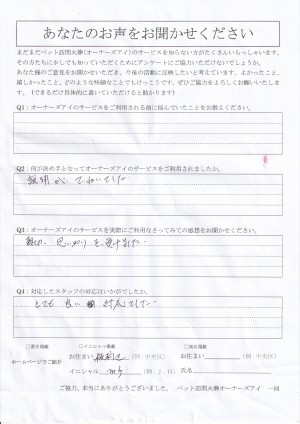 あなたのお声をお聞かせください
まだまだペット訪問火葬(オーナーズアイ)のサービスを知らない方がたくさんいらっしゃいます。
その方たちに少しでも知っていただくためにアンケートにご協力いただけないでしょうか。
あなた様のご意見をお聞かせいただき、今後の活動に反映したいと考えています。よかったこと、
嬉しかったこと、どのような些細なことでもけっこうです、ぜひご協力をよろしくお願いいたしま
す。(できるだけ具体的に書いていただけると助かります)
Q1:オーナーズアイのサービスをご利用される前に悩んでいたことをお教えください。
Q2:何が決め手となってオーナーズアイのサービスをご利用されましたか。
説明が ていねいでした
Q3:オーナーズアイのサービスを実際にご利用なさってみての感想をお聞かせください。
親切、思いやりを受けました
Q4:対応したスタッフの対応はいかがでしたか。
とても 良い 対応でした
□匿名掲載
□イニシャル掲載
□実名掲載
ホームページでご紹介
お住まい
(例:中央区)
お住まい
(例:中央区)
イニシャル
(例:J.H)
氏名
ご協力、本当にありがとうございました。 ペット訪問火葬オーナーズアイ 一同